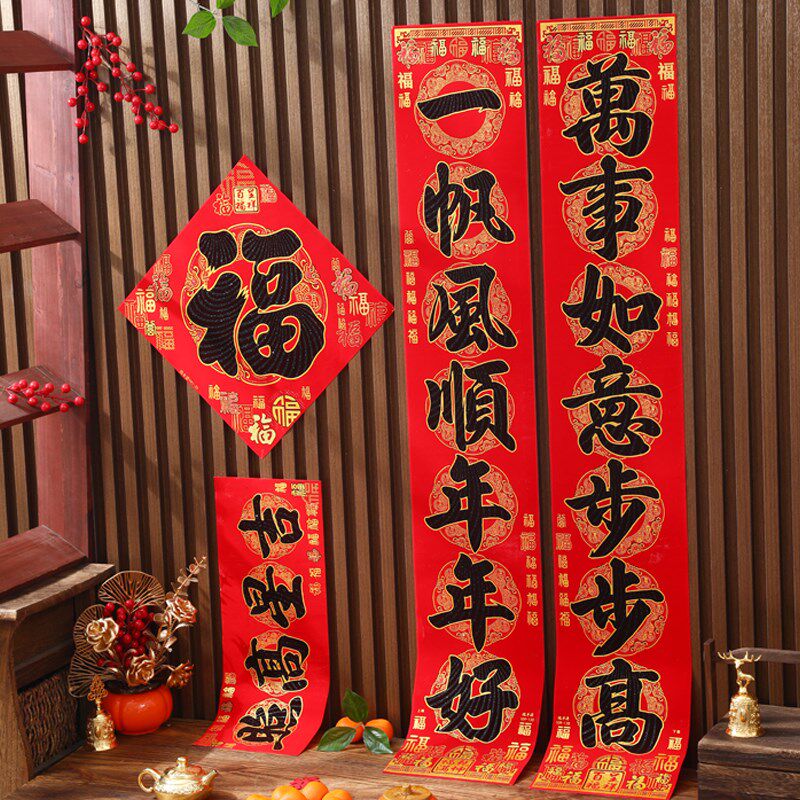 萬事如意步步高
一帆風順年年好
吉星高照
福